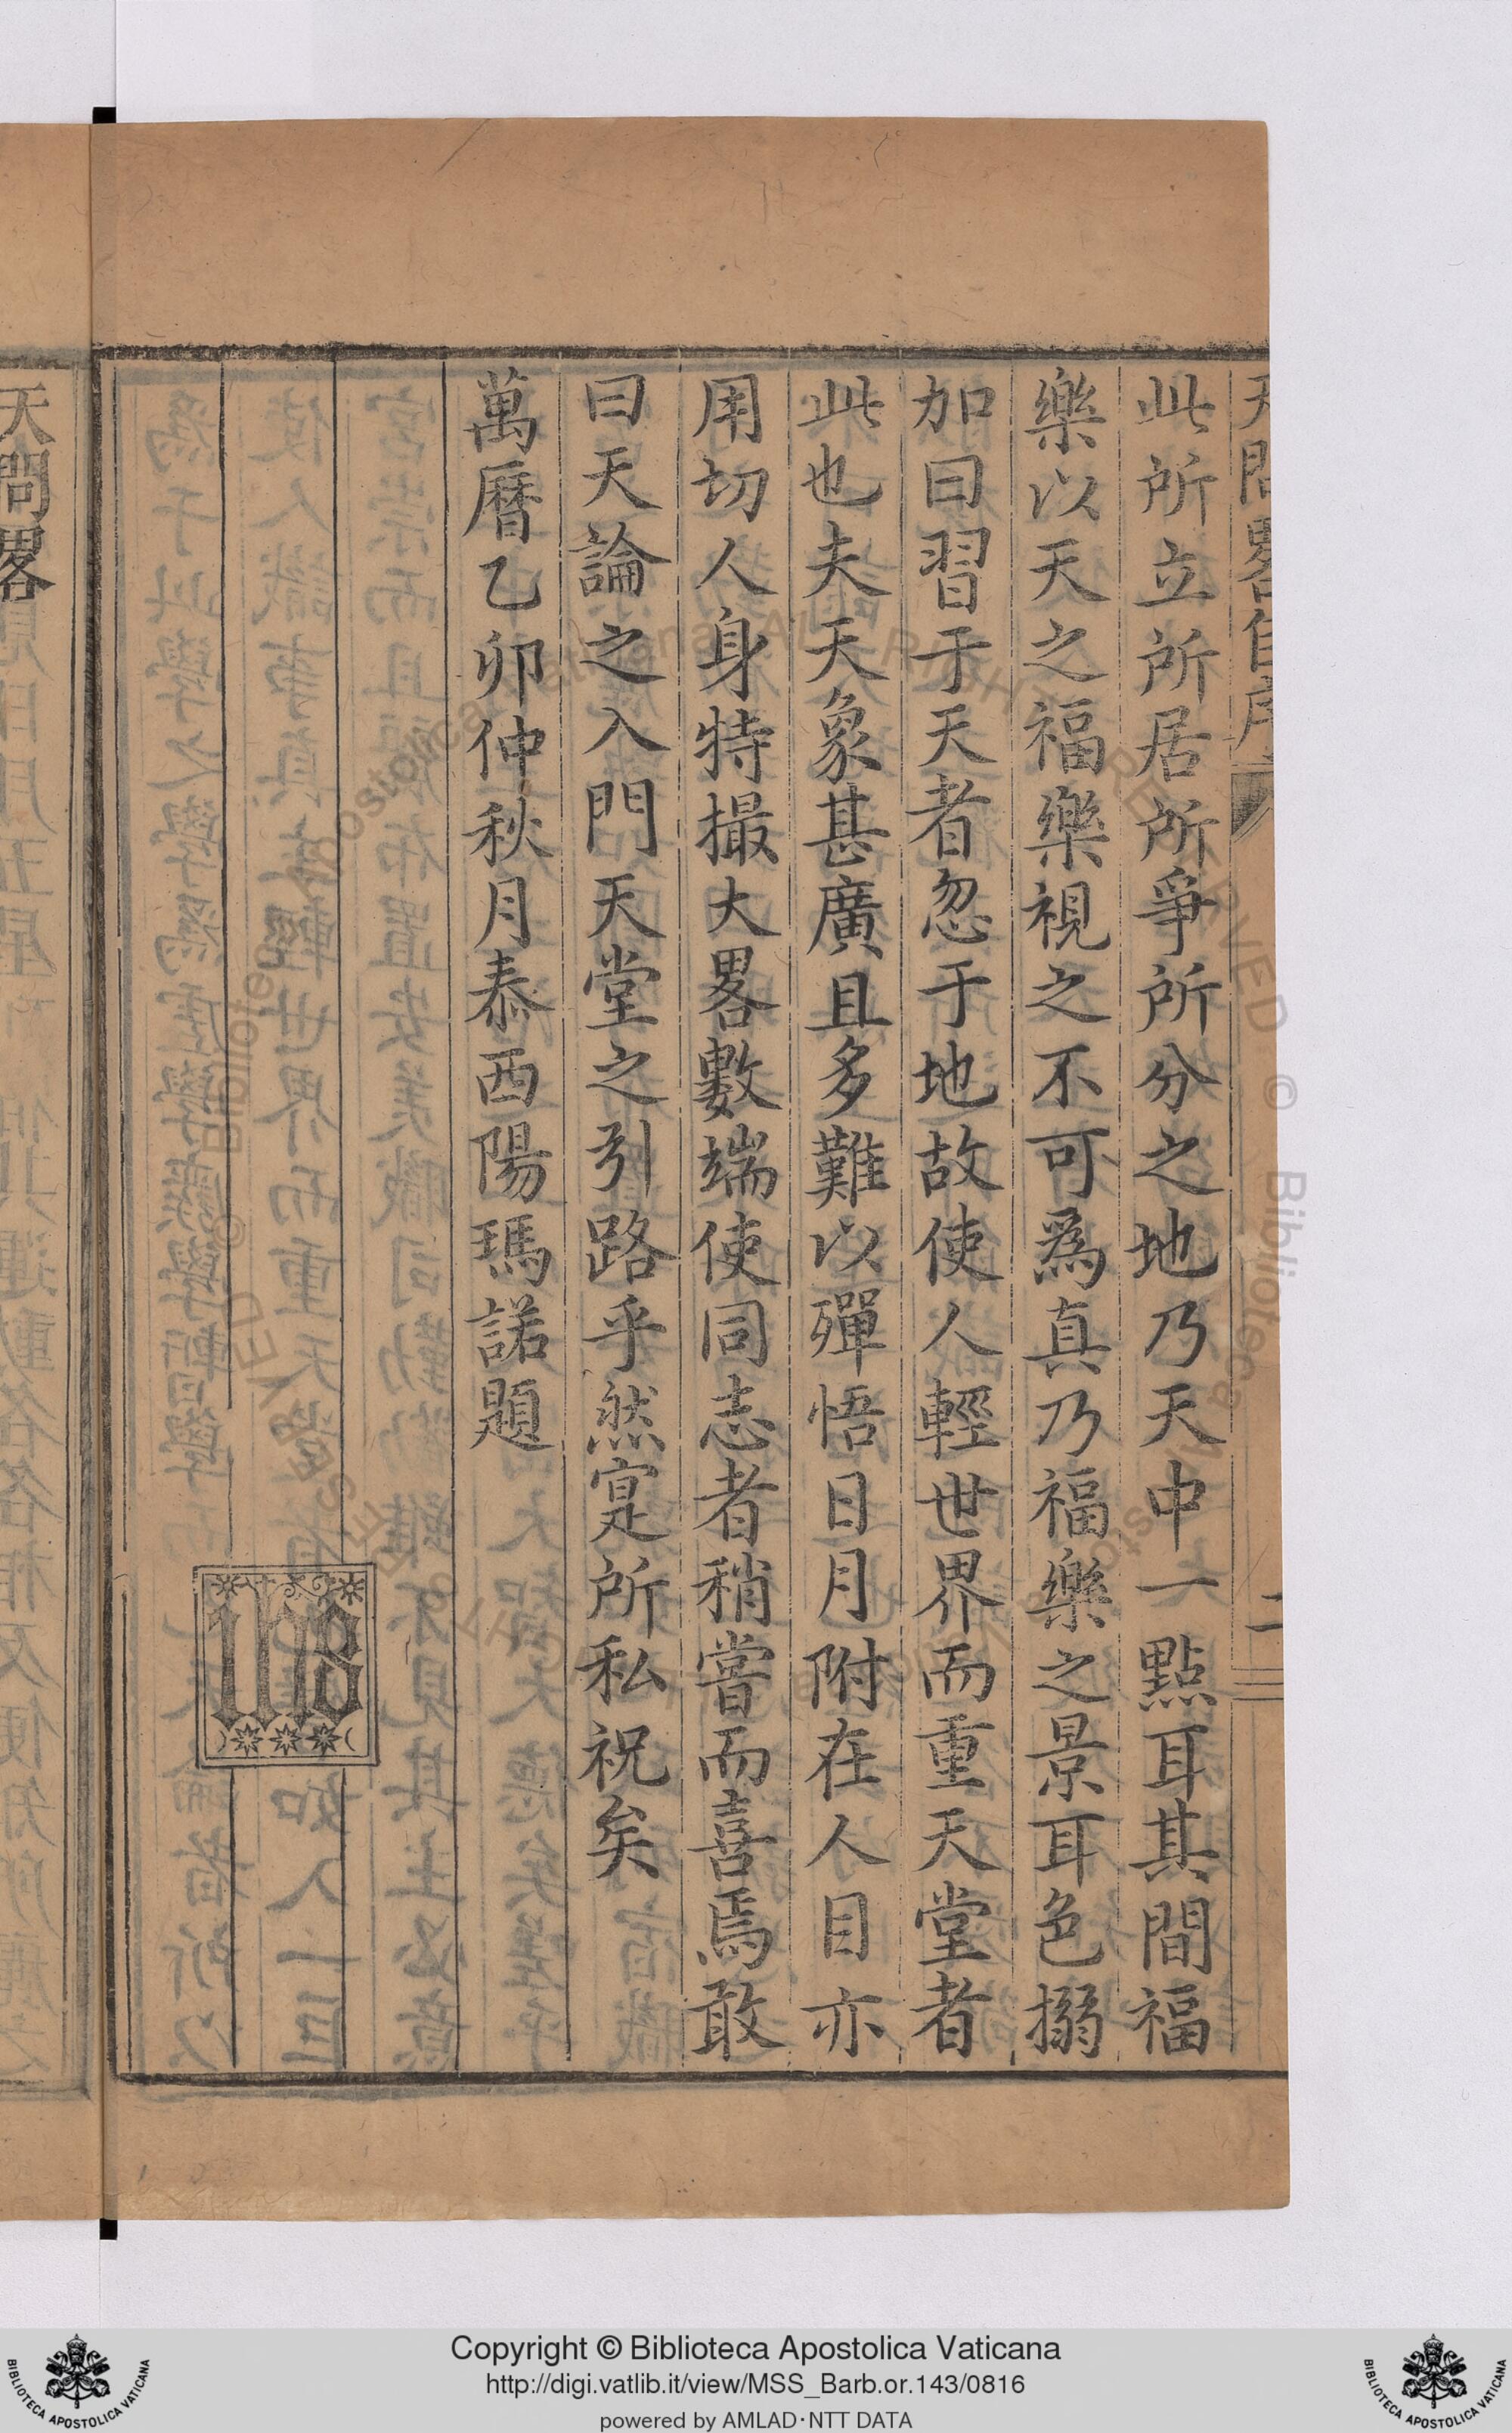 天問畧自序
二
此所立所居所爭所分之地乃天中一點耳其間福
樂以天之福樂視之不可爲真乃福樂之景耳色搦
加曰習于天者忽于地故使人輕世界而重天堂者
此也夫天象甚廣且多難以殫悟日月附在人目亦
用切人身特撮大畧數端使同志者稍嘗而喜焉敢
曰天論之入門天堂之引路乎然寔所私祝矣
萬曆乙卯仲秋月泰西陽瑪諾題
IHS
天問畧
Copyright © Biblioteca Apostolica Vaticana
http://digi.vatlib.it/view/MSS_Barb.or.143/0816
powered by AMLAD·NTT DATA
BIBLIOTECA APOSTOLICA VATICANA
BIBLIOTECA APOSTOLICA VATICANA